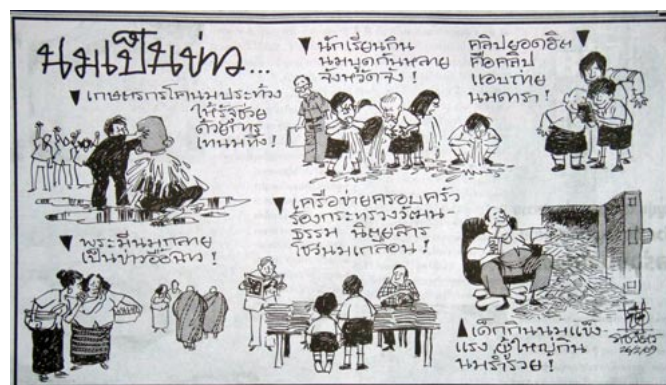 นมเป็นข่าว...
เกษตรกรโคนมประท้วง
ให้รัฐช่วย
ด้วยการ
เทนมทิ้ง!
นักเรียนกิน
นมบูดกันหลาย
จังหวัดจัง!
คลิปยอดฮิต
คือคลิป
แอบถ่าย
นมดารา!
พระมีนมกลาย
เป็นข่าวอื้อฉาว!
เครือข่ายครอบครัว
ร้องกระทรวงวัฒน-
ธรรม นิตยสาร
โชว์นมเกลื่อน!
เด็กกินนมแข็ง-
แรง ผู้ใหญ่กิน
นมร่ำรวย!